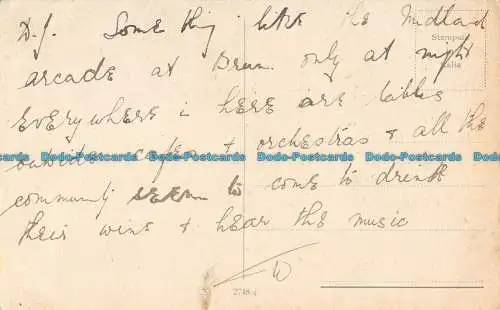 D.J. Some thing like the Midland
Stampato
Italia
arcade at Brum only at night
everywhere in here are tables
outside cafes & orchestras & all the
Dodo-Postcards Dodo-Postcards Dodo-Postcards Dodo-Postcards
community seem to come to drink
their wine & hear the music
W
2748